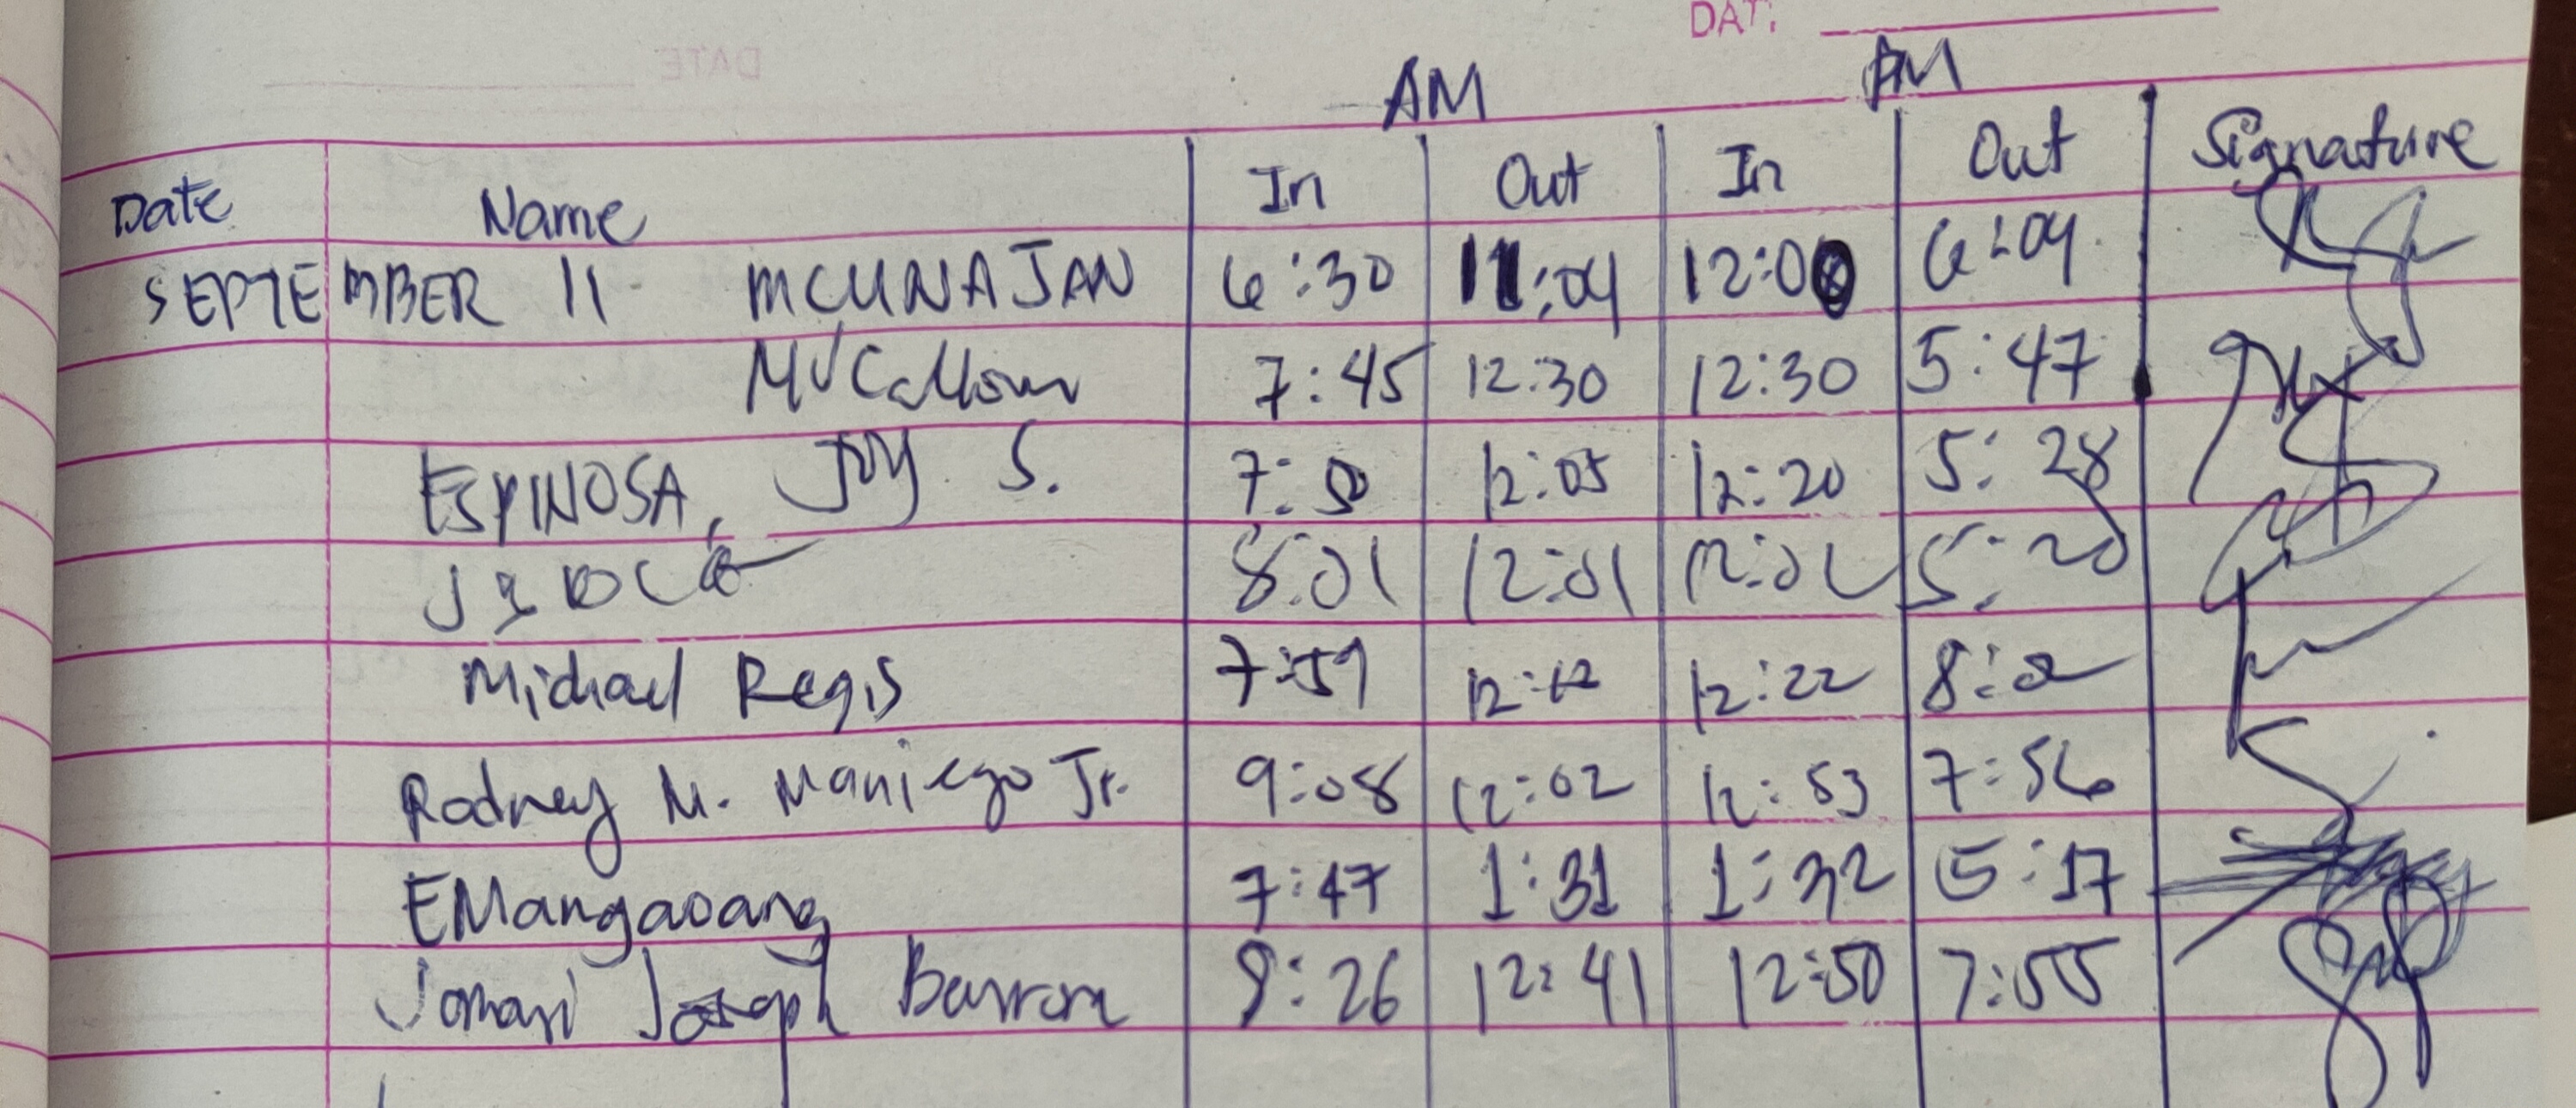 DATE
AM PM
Date Name In Out In Out Signature
SEPTEMBER 11 MCUNAJAN 6:30 11:04 12:00 6:04
7:45 12:30 12:30 5:47
ESPINOSA, JOY S. 7:50 12:05 12:20 5:28
8:01 12:01 12:02 5:20
Michael Regis 7:59 12:12 12:22 8:02
Rodney M. Maniego Jr. 9:08 12:02 12:53 7:56
EMangaoang 7:47 1:31 1:32 5:17
Jomari Joseph 9:26 12:41 12:50 7:55